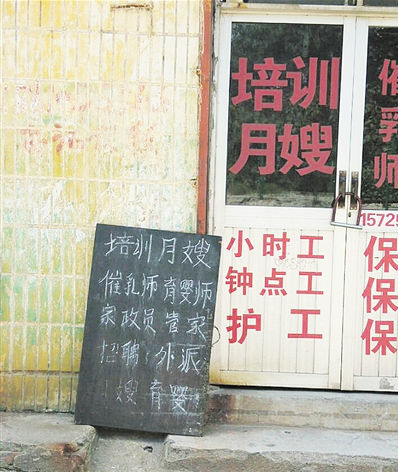 培训
月嫂
催
乳
师
15725
小时工
钟点工
护工
保
保
保
培训月嫂
催乳师 育婴师
家政员 管家
招聘:外派
嫂 育婴